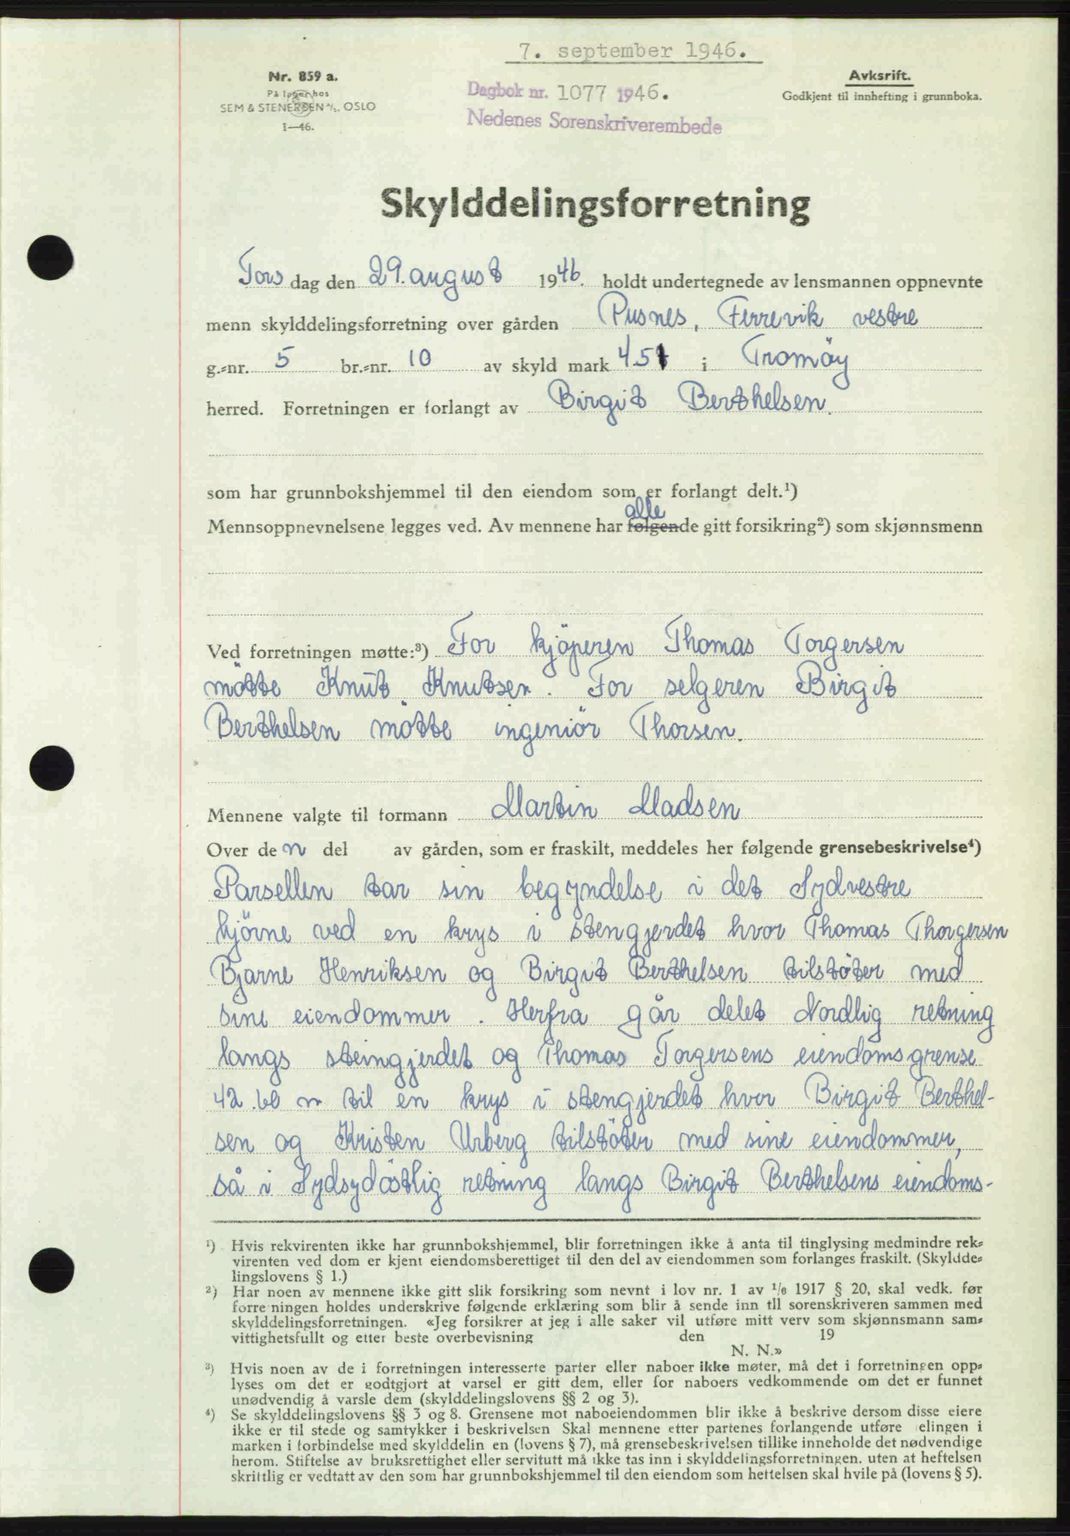 7. september 1946.
Nr. 859 a.
På lager hos
SEM & STENERSEN A/S, OSLO
1—46.
Dagbok nr. 1077 1946.
Nedenes Sorenskriverembede
Avksrift.
Godkjent til innhefting i grunnboka.
Skylddelingsforretning
Tors dag den 29. august 1946. holdt undertegnede av lensmannen oppnevnte
menn skylddelingsforretning over gården Pusnes, Ferrevik vestre
g.-nr. 5 br.-nr. 10 av skyld mark 4.51 i Tromöy
herred. Forretningen er forlangt av Birgit Berthelsen.
som har grunnbokshjemmel til den eiendom som er forlangt delt.¹)
alle
Mennsoppnevnelsene legges ved. Av mennene har følgende gitt forsikring²) som skjønnsmenn
Ved forretningen møtte:³) For kjöperen Thomas Torgersen
mötte Knut Knutsen. For selgeren Birgit
Berthelsen mötte ingeniör Thorsen.
Mennene valgte til formann Martin Madsen
Over de n del av gården, som er fraskilt, meddeles her følgende grensebeskrivelse⁴)
Parsellen tar sin begyndelse i det Sydvestre
hjörne ved en krys i stengjerdet hvor Thomas Thorgersen
Bjarne Henriksen og Birgit Berthelsen tilstöter med
sine eiendommer. Herfra går delet Nordlig retning
langs steingjerdet og Thomas Torgersens eiendomsgrense
42.60 m til en krys i stengjerdet hvor Birgit Berthel-
sen og Kristen Urberg tilstöter med sine eiendommer,
så i Sydsydöstlig retning langs Birgit Berthelsens eiendoms-
¹) Hvis rekvirenten ikke har grunnbokshjemmel, blir forretningen ikke å anta til tinglysing medmindre rek-
virenten ved dom er kjent eiendomsberettiget til den del av eiendommen som forlanges fraskilt. (Skyldde-
lingslovens § 1.)
²) Har noen av mennene ikke gitt slik forsikring som nevnt i lov nr. 1 av 1/6 1917 § 20, skal vedk. før
forre ningen holdes underskrive følgende erklæring som blir å sende inn til sorenskriveren sammen med
skylddelingsforretningen. «Jeg forsikrer at jeg i alle saker vil utføre mitt verv som skjønnsmann sam-
vittighetsfullt og etter beste overbevisning den 19
N. N.»
³) Hvis noen av de i forretningen interesserte parter eller naboer ikke møter, må det i forretningen opp-
lyses om det er godtgjort at varsel er gitt dem, eller for naboers vedkommende om det er funnet
unødvendig å varsle dem (skylddelingslovens §§ 2 og 3).
⁴) Se skylddelingslovens §§ 3 og 8. Grensene mot naboeiendommen blir ikke å beskrive dersom disse eiere
ikke er til stede og samtykker i beskrivelsen Skal mennene etter partenes forlangende utføre elingen i
marken i forbindelse med skylddelin en (lovens § 7), må grensebeskrivelsen tillike inneholde det nødvendige
herom. Stiftelse av bruksrettighet eller servitutt må ikke tas inn i skylddelingsforretningen. uten at heftelsen
skriftlig er vedtatt av den som har grunnbokshjemmel til den eiendom som heftelsen skal hvile på (lovens § 5).